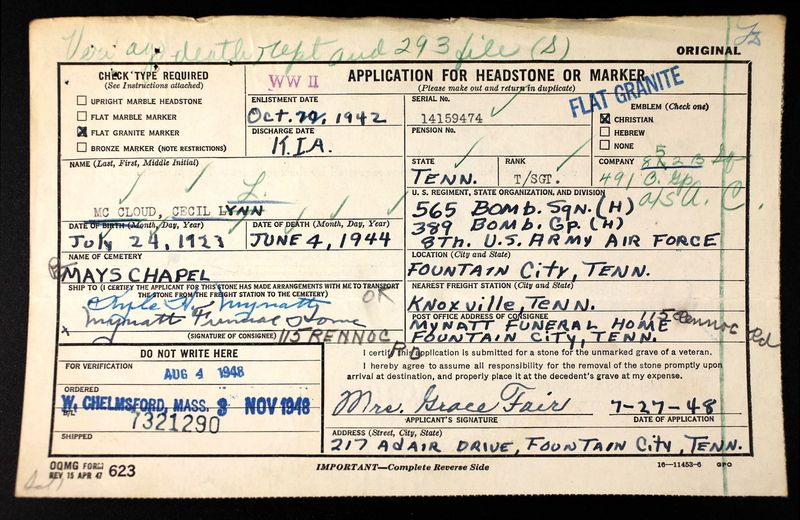 Veri ag death rept and 293 file (S)
ORIGINAL
CHECK TYPE REQUIRED
(See Instructions attached)
UPRIGHT MARBLE HEADSTONE
FLAT MARBLE MARKER
FLAT GRANITE MARKER
BRONZE MARKER (NOTE RESTRICTIONS)
WW II
ENLISTMENT DATE
Oct. 1942
DISCHARGE DATE
K.I.A.
APPLICATION FOR HEADSTONE OR MARKER
(Please make out and return in duplicate)
FLAT GRANITE
SERIAL No.
14159474
PENSION No.
EMBLEM (Check one)
CHRISTIAN
HEBREW
NONE
NAME (Last, First, Middle Initial)
L.
MC CLOUD, CECIL LYNN
STATE
TENN.
RANK
T/SGT.
COMPANY
491 B. Gp
U. S. REGIMENT, STATE ORGANIZATION, AND DIVISION
565 BOMB. SQN. (H)
389 BOMB. GP. (H)
8TH. U.S. ARMY AIR FORCE
DATE OF BIRTH (Month, Day, Year)
July 24, 1923
DATE OF DEATH (Month, Day, Year)
JUNE 4, 1944
NAME OF CEMETERY
MAYS CHAPEL
LOCATION (City and State)
FOUNTAIN CITY, TENN.
SHIP TO (I CERTIFY THE APPLICANT FOR THIS STONE HAS MADE ARRANGEMENTS WITH ME TO TRANSPORT
THE STONE FROM THE FREIGHT STATION TO THE CEMETERY)
Mynatt
OK
Mynatt Funeral Home
(SIGNATURE OF CONSIGNEE)
115 RENNOC RD
NEAREST FREIGHT STATION (City and State)
KNOXVILLE, TENN.
POST OFFICE ADDRESS OF CONSIGNEE
115 Rennoc Rd
MYNATT FUNERAL HOME
FOUNTAIN CITY, TENN.
DO NOT WRITE HERE
FOR VERIFICATION
AUG 4 1948
ORDERED
W. CHELMSFORD, MASS. 3 NOV 1948
B/L
7321290
SHIPPED
I certify this application is submitted for a stone for the unmarked grave of a veteran.
I hereby agree to assume all responsibility for the removal of the stone promptly
upon arrival at destination, and properly place it at the decedent's grave at my expense.
Mrs. Grace Fair
7-27-48
APPLICANT'S SIGNATURE
DATE OF APPLICATION
ADDRESS (Street, City, State)
217 ADAIR DRIVE, FOUNTAIN CITY, TENN.
OQMG FORM
REV 15 APR 47
623
IMPORTANT—Complete Reverse Side
16—11453-6 GPO